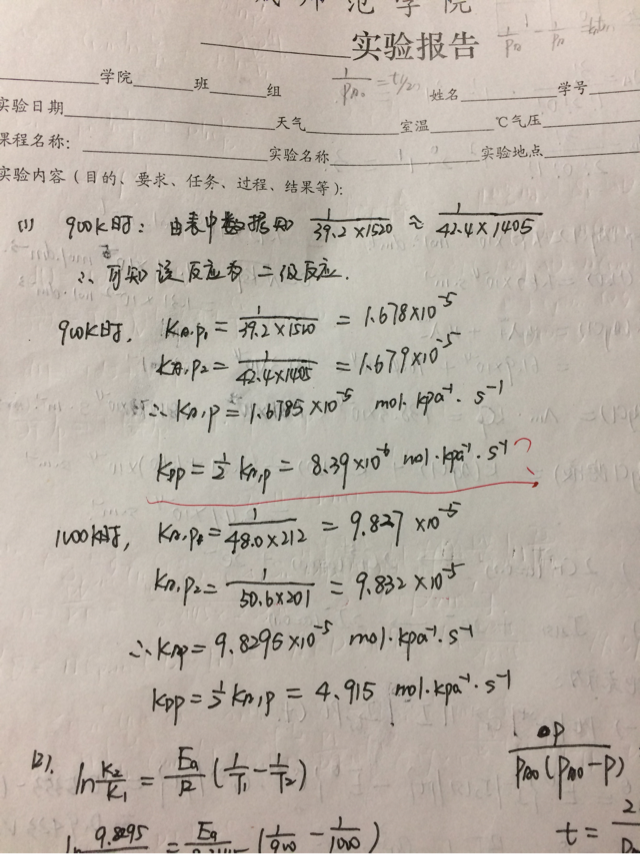 师范学院
实验报告
学院 班 组 姓名 学号
1/P_{A0} = t_{1/2}
实验日期 天气 室温 ℃气压
课程名称： 实验名称 实验地点
实验内容（目的、要求、任务、过程、结果等）：
(1) 900K时：由表中数据知 1/(39.2×1520) ≈ 1/(42.4×1405)
∴ 可知该反应为二级反应.
900K时, K_{A,P1} = 1/(39.2×1520) = 1.678×10^{-5}
K_{A,P2} = 1/(42.4×1405) = 1.679×10^{-5}
∴ K_{A,P} = 1.6785×10^{-5} mol·kpa^{-1}·s^{-1}
K_{PP} = 1/2 K_{A,P} = 8.39×10^{-6} mol·kpa^{-1}·s^{-1} ?
1000K时, K_{A,P1} = 1/(48.0×212) = 9.827×10^{-5}
K_{A,P2} = 1/(50.6×201) = 9.832×10^{-5}
∴ K_{AP} = 9.8295×10^{-5} mol·kpa^{-1}·s^{-1}
K_{PP} = 1/2 K_{A,P} = 4.915 mol·kpa^{-1}·s^{-1}
(2). ln K_2/K_1 = Ea/R (1/T_1 − 1/T_2)
ln 9.8295 = Ea (1/900 − 1/1000)
P/(P_{A0}(P_{A0}−P))
t = 2